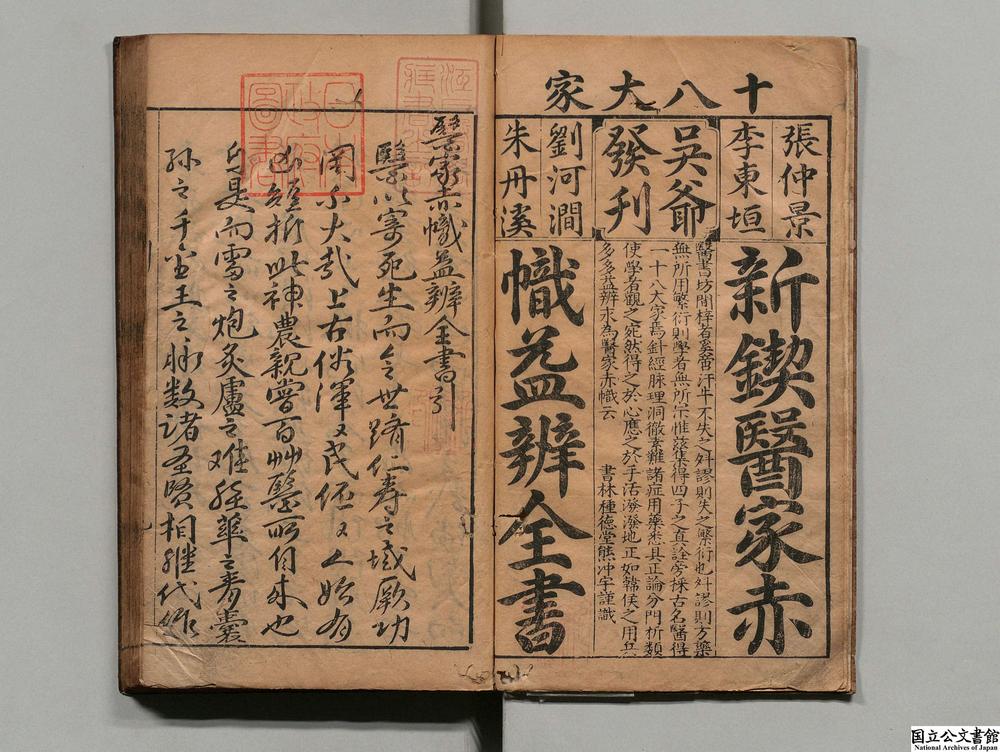 十八大家
張仲景
李東垣
吳爺
發刊
劉河澗
朱丹溪
新鍥醫家赤
醫書坊間梓者奚啻汗牛不失之舛謬則失之繁衍也舛謬則方藥
無所用繁衍則學者無所宗惟茲集得四子之真詮旁採古名醫得
一十八大家焉針經脉理洞徹素難諸症用藥悉具正論分門析類
使學者觀之宛然得之於心應之於手活潑潑地正如韓侯之用兵
多多益辨求為醫家赤幟云
書林種德堂熊冲宇謹識
幟益辨全書
醫家赤幟益辨全書引
醫以寄死生而令世躋仁壽之域厥功
罔不大哉上古俗渾〻民伾〻人始有
凶短折此神農親嘗百艸醫所自來也
自是而雷之炮炙盧之難經華之青囊
孫之千金王之脉数諸圣賢相継代作
日本政府圖書
国立公文書館
National Archives of Japan